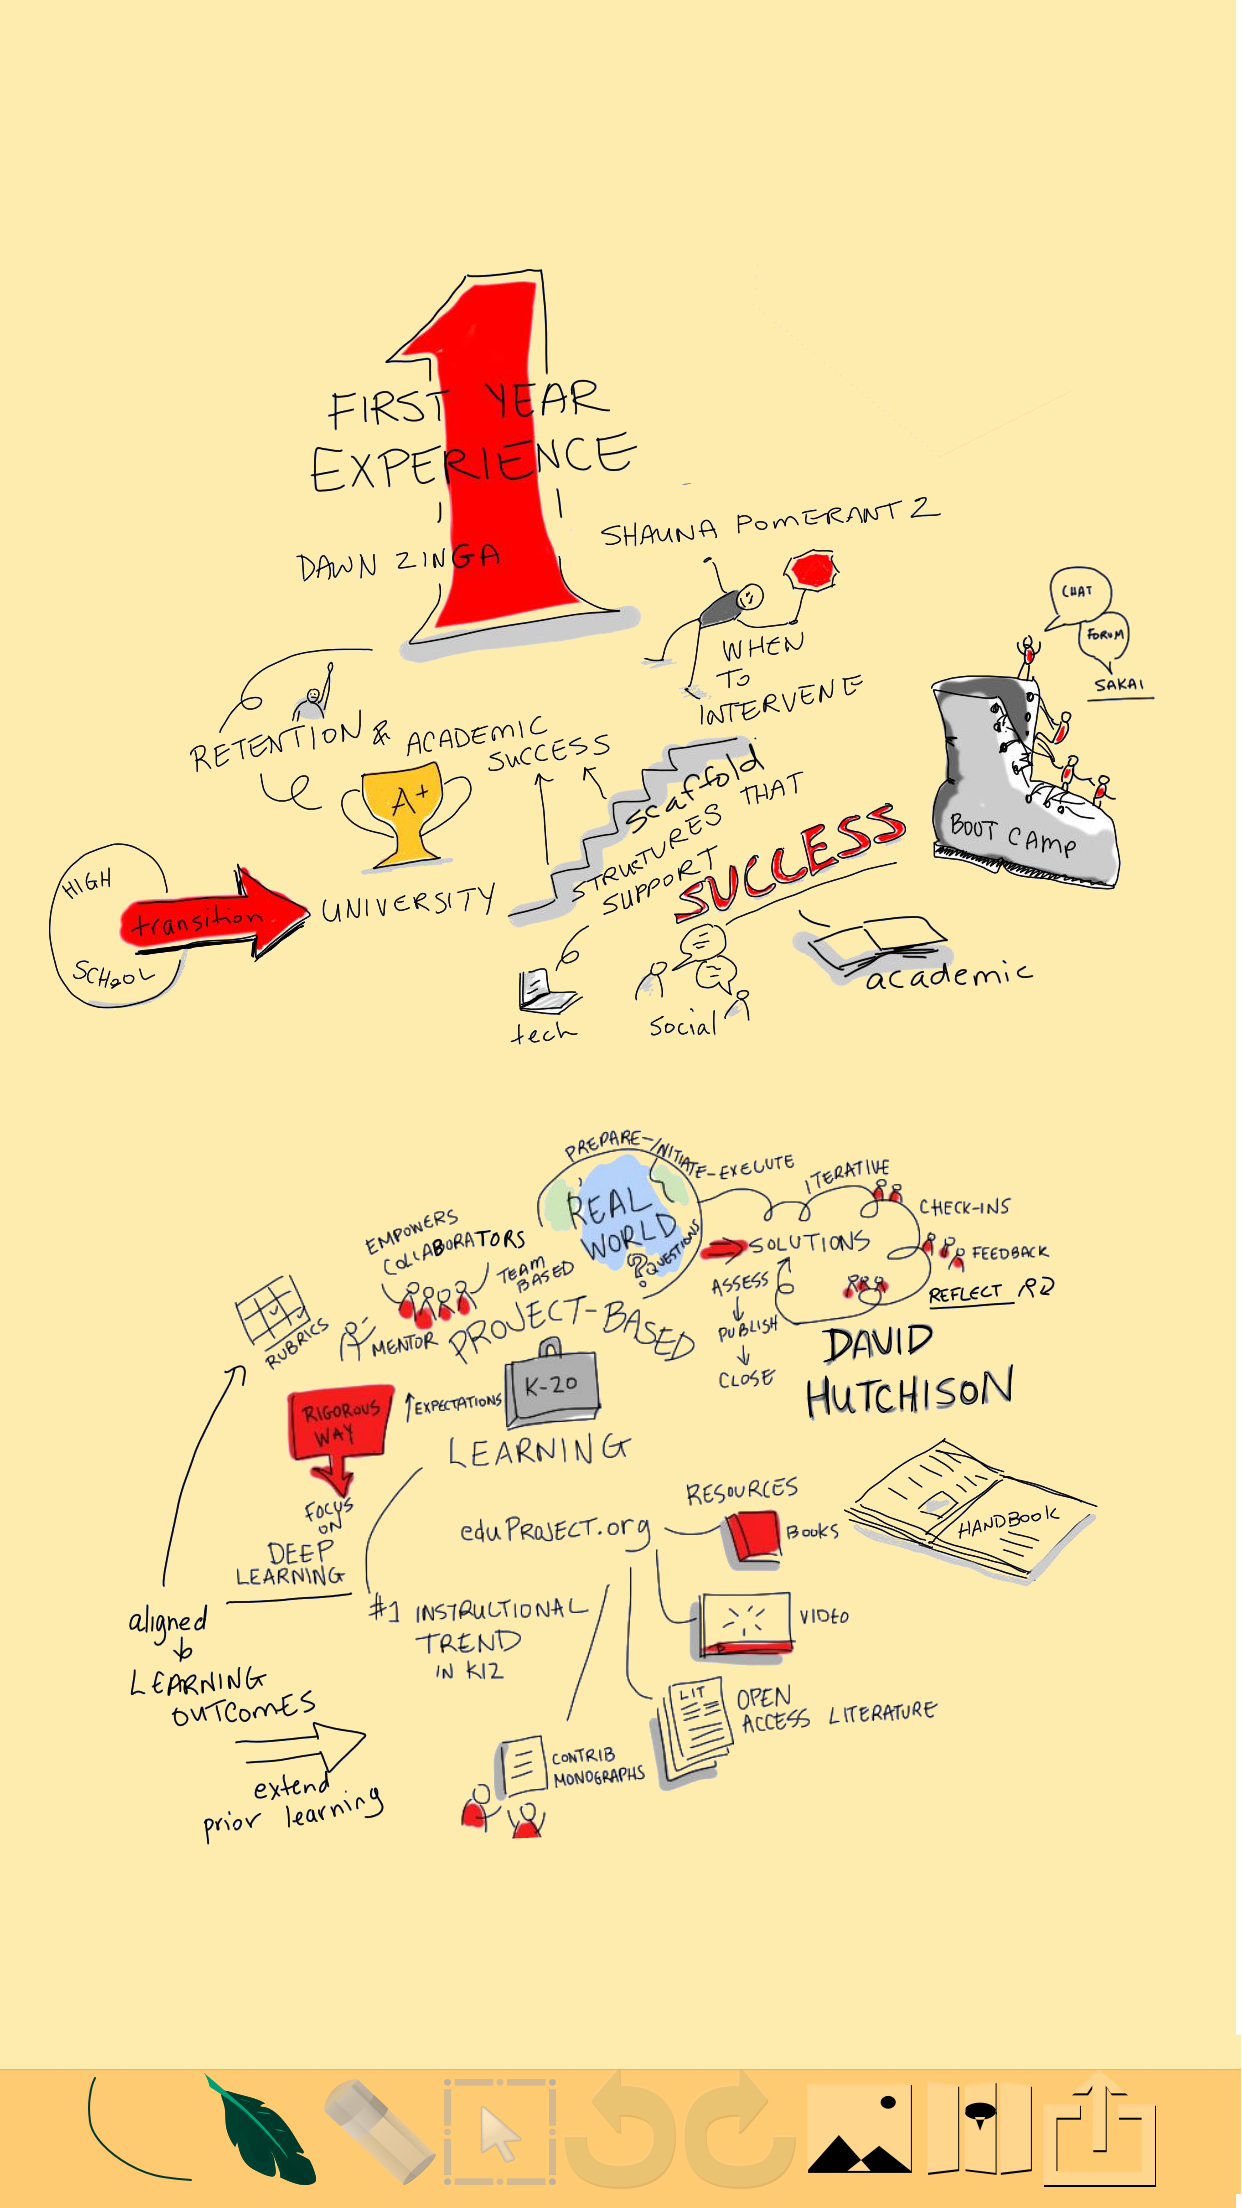 FIRST YEAR
EXPERIENCE
DAWN ZINGA
SHAUNA POMERANTZ
WHEN
TO
INTERVENE
CHAT
FORUM
SAKAI
BOOT CAMP
RETENTION & ACADEMIC
SUCCESS
A+
HIGH
SCHOOL
transition
UNIVERSITY
scaffold
STRUCTURES THAT
SUPPORT
SUCCESS
tech
social
academic
PREPARE-INITIATE-EXECUTE
REAL
WORLD
?
QUESTIONS
ITERATIVE
CHECK-INS
FEEDBACK
REFLECT
SOLUTIONS
ASSESS
PUBLISH
CLOSE
EMPOWERS
COLLABORATORS
TEAM
BASED
RUBRICS
MENTOR
PROJECT-BASED
K-20
LEARNING
DAVID
HUTCHISON
RIGOROUS
WAY
EXPECTATIONS
FOCUS
ON
DEEP
LEARNING
aligned
LEARNING
OUTCOMES
extend
prior learning
#1 INSTRUCTIONAL
TREND
IN K12
eduPROJECT.org
RESOURCES
BOOKS
HANDBOOK
VIDEO
LIT
OPEN
ACCESS LITERATURE
CONTRIB
MONOGRAPHS